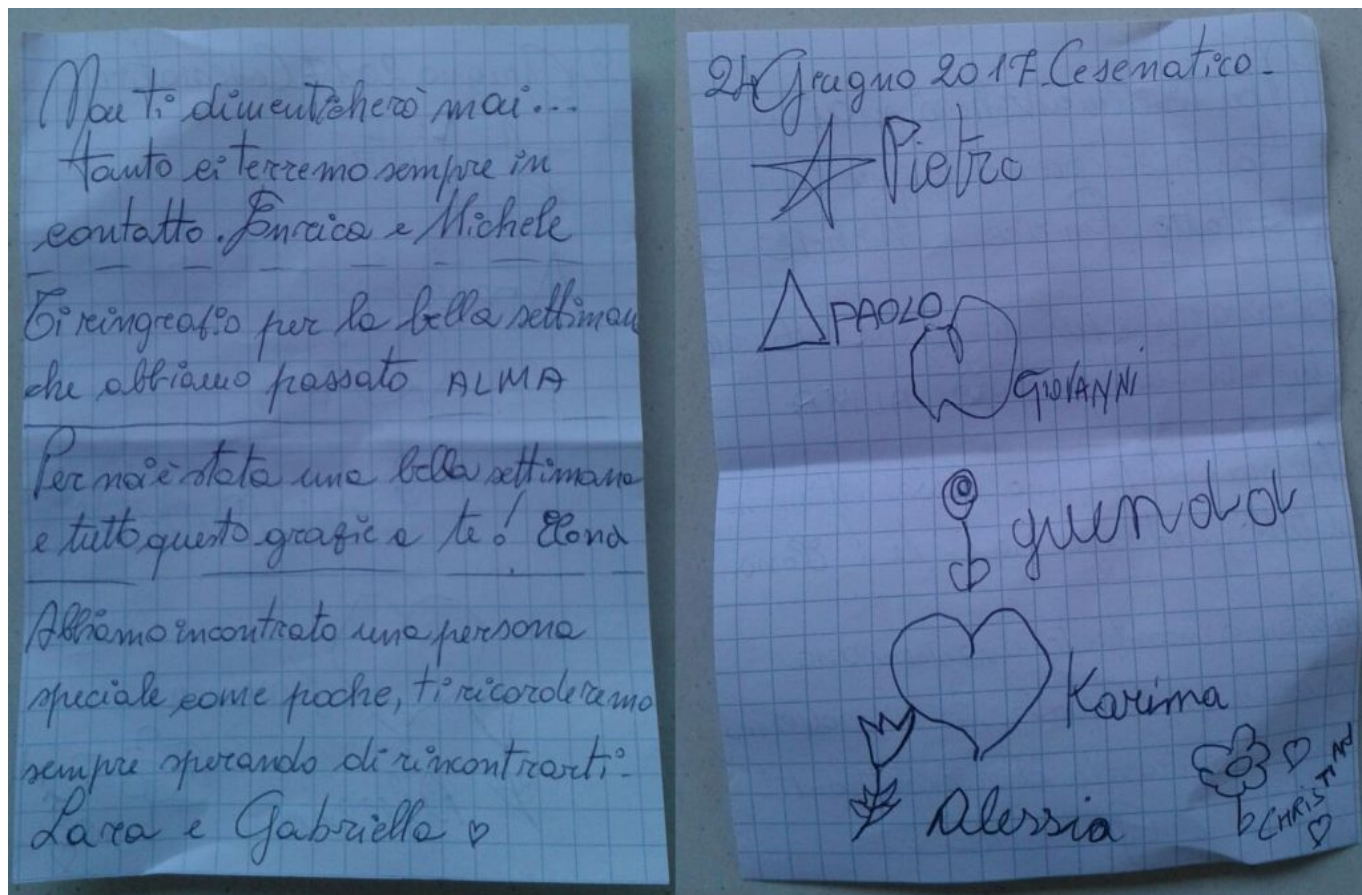 Non ti dimenticherò mai...
tanto ci terremo sempre in
contatto. Enrica e Michele
Ti ringrazio per la bella settiman
che abbiamo passato ALMA
Per noi è stata una bella settimana
e tutto questo grazie a te! Elona
Abbiamo incontrato una persona
speciale come poche, ti ricorderemo
sempre sperando di rincontrarti.
Lara e Gabriella ♡
24 Giugno 2017 Cesenatico.
Pietro
PAOLO
GIOVANNI
guendal
Karima
Alessia
CHRISTIAN